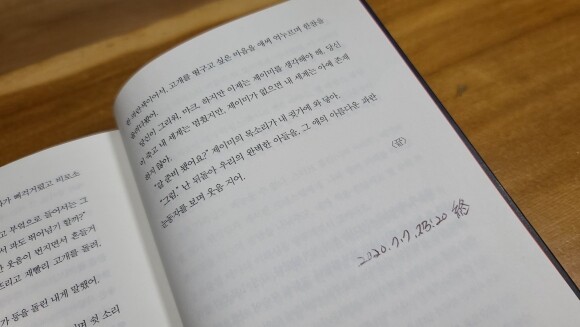 가 삐걱거렸고 비로소
고 부엌으로 들어서는 그
서 파도 뛰어넘기 할까?"
한 웃음이 번지면서 흔들거
트리고 재빨리 고개를 돌려,
가 등을 돌린 내게 말했어.
이며 쉿 소리
고개를 떨구고 싶은 마음을 애써 억누르며 한참을
당신이 그리워, 마크. 하지만 이제는 제이미를 생각해야 해. 당신
이 죽고 내 세계는 멈췄지만, 제이미가 없으면 내 세계는 아예 존재
하지 않아.
"알 준비 됐어요?" 제이미의 목소리가 내 귓가에 와 닿아.
"그럼." 난 뒤돌아 우리의 완벽한 아들을, 그 애의 아름다운 파란
눈동자를 보며 웃음 지어.
(끝)
2020.7.7. 23:20 終